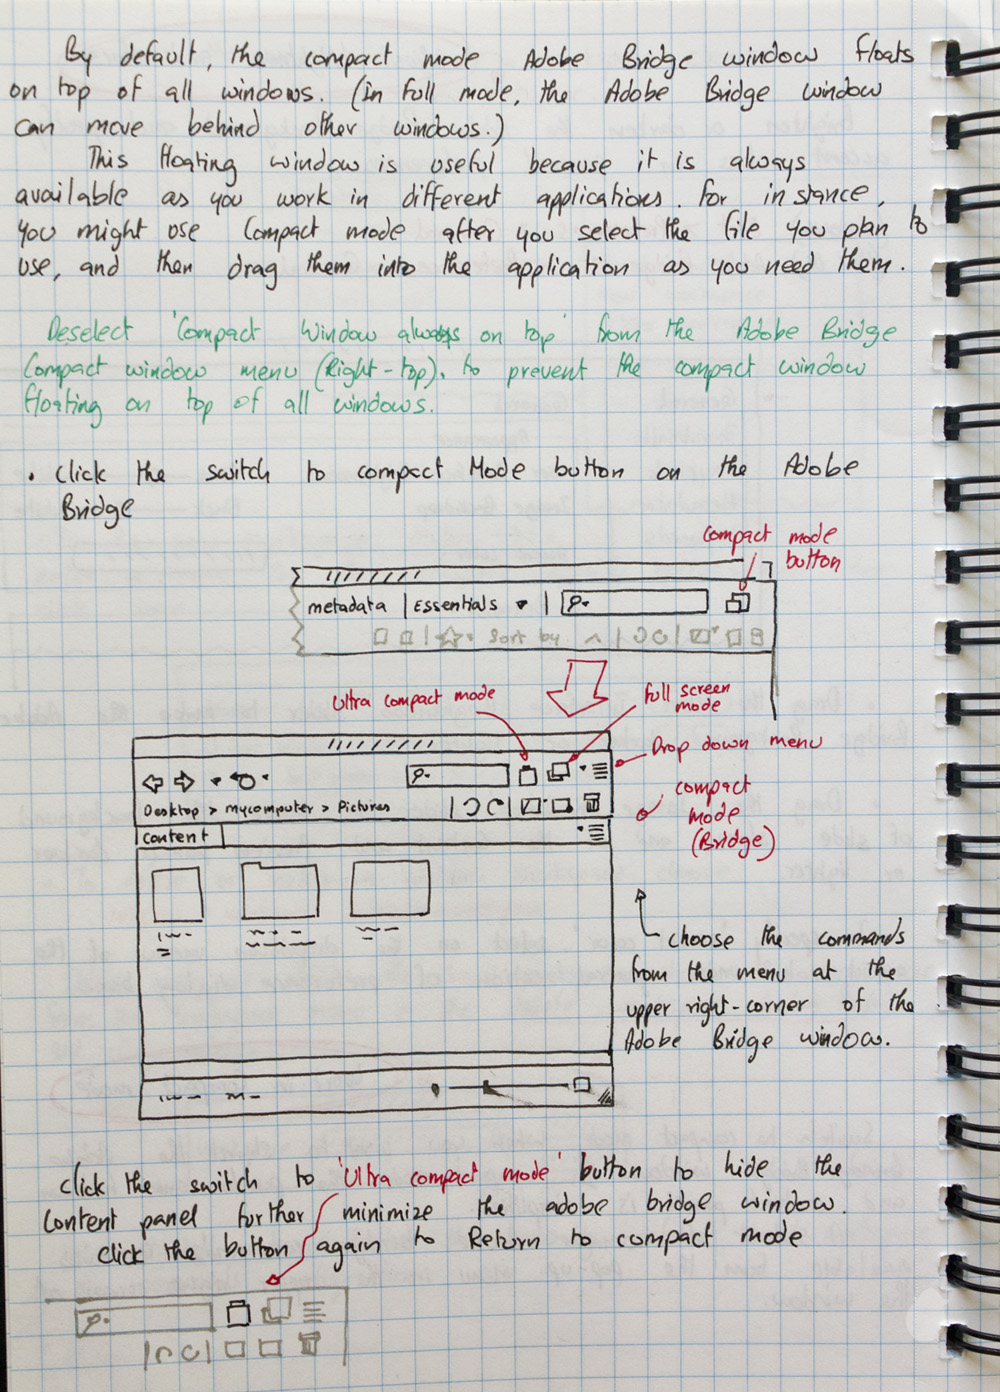 By default, the compact mode Adobe Bridge window floats
on top of all windows. (in full mode, the Adobe Bridge window
can move behind other windows.)
This floating window is useful because it is always
available as you work in different applications. for instance,
you might use Compact mode after you select the file you plan to
use, and then drag them into the application as you need them.
Deselect 'Compact Window always on top' from the Adobe Bridge
Compact window menu (Right-top), to prevent the compact window
floating on top of all windows.
• Click the switch to compact Mode button on the Adobe
Bridge
Compact mode
button
metadata | Essentials
Sort by
Ultra compact mode
full screen
mode
Drop down menu
Desktop > mycomputer > Pictures
compact
mode
(Bridge)
Content
choose the commands
from the menu at the
upper right-corner of the
Adobe Bridge window.
click the switch to 'Ultra compact mode' button to hide the
Content panel further minimize the adobe bridge window.
click the button again to Return to compact mode